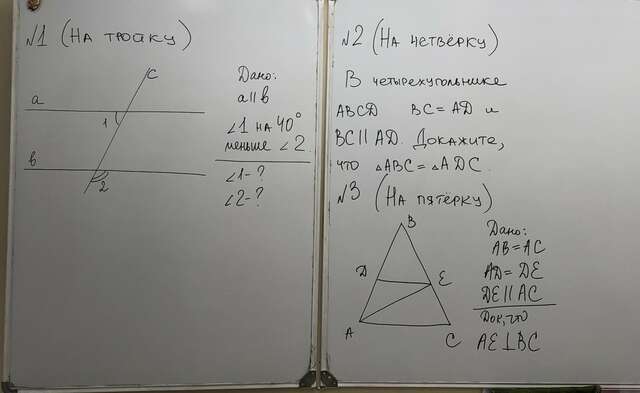 №1 (На тройку)
c
a
1
b
2
Дано:
a||b
∠1 на 40°
меньше ∠2.
∠1-?
∠2-?
№2 (На четвёрку)
В четырехугольнике
ABCD BC=AD и
BC||AD. Докажите,
что △ABC=△ADC.
№3 (На пятёрку)
B
D
E
A
C
Дано:
AB=AC
AD=DE
DE||AC
Док, что
AE⊥BC